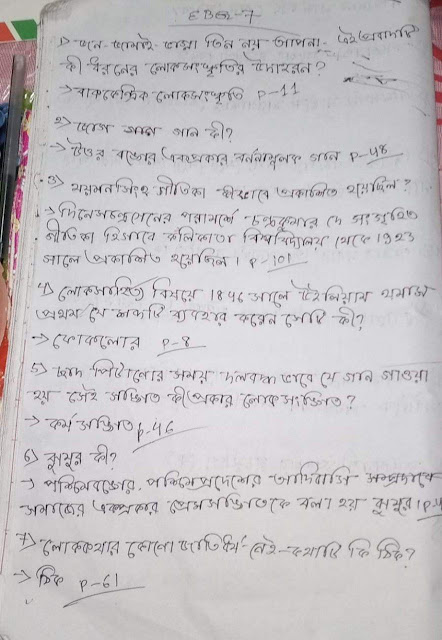 EBG-7
১) জন-জামাই-ভাগ্না তিন নয় আপনা- এই প্রবাদটি
কী ধরনের লোকসংস্কৃতির উদাহরন?
→ বাককেন্দ্রিক লোকসংস্কৃতি P-11
২) গান কী?
→ উত্তর বঙ্গের একপ্রকার বর্ননামূলক গান P-48
৩) ময়মনসিংহ গীতিকা কীভাবে প্রকাশিত হয়েছিল?
→ দিনেশচন্দ্রসেনের পরামর্শে চন্দ্রকুমার দে সংগৃহিত
গীতিকা হিসাবে কলিকাতা বিশ্ববিদ্যালয় থেকে 1923
সালে প্রকাশিত হয়েছিল। P-101
4) লোকসাহিত্য বিষয়ে 1846 সালে উইলিয়াম থমাস
প্রথম যে শব্দটি ব্যবহার করেন সেটি কী?
→ ফোকলোর P-8
5) ছাদ পিটানোর সময় দলবদ্ধ ভাবে যে গান গাওয়া
হয় সেই সঙ্গিত কী প্রকার লোকসংঙ্গিত?
→ কর্ম সঙ্গিত P-46
6) ঝুমুর কী?
→ পশ্চিমবঙ্গের, পশ্চিমপ্রদেশের আদিবাসি সম্প্রদায়ের
সমাজের একপ্রকার প্রেমসঙ্গিতকে বলা হয় ঝুমুর।
7) লোককথার কোনো জাতিধর্ম নেই - কথাটি কি ঠিক?
→ ঠিক P-61